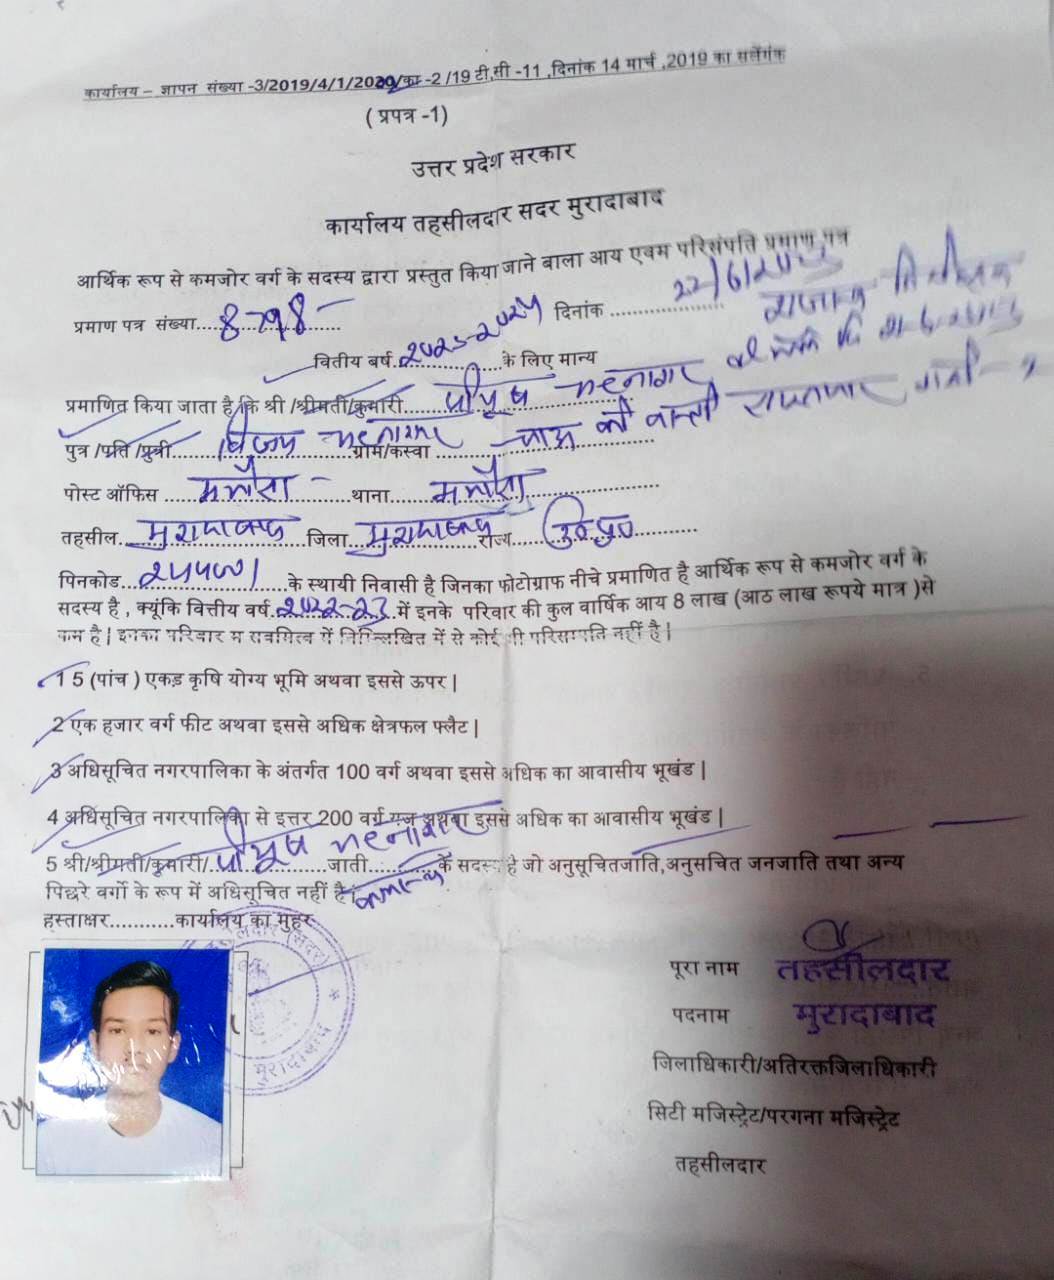 कार्यालय – ज्ञापन संख्या -3/2019/4/1/2020/का -2 /19 टी.सी -11 ,दिनांक 14 मार्च ,2019 का सलेंगंक
( प्रपत्र -1)
उत्तर प्रदेश सरकार
कार्यालय तहसीलदार सदर मुरादाबाद
आर्थिक रूप से कमजोर वर्ग के सदस्य द्वारा प्रस्तुत किया जाने वाला आय एवम परिसंपति प्रमाण पत्र
प्रमाण पत्र संख्या....8798 दिनांक 22/6/2023
वितीय बर्ष. 2023-2024 के लिए मान्य
प्रमाणित किया जाता है कि श्री /श्रीमती/कुमारी.... पीयूष भटनागर
पुत्र /पति /पुत्री.... विजय भटनागर ग्राम/कस्वा
पोस्ट ऑफिस .... मझोला थाना.... मझोला
तहसील.. मुरादाबाद जिला मुरादाबाद राज्य... उ०प्र०
पिनकोड... 244001 के स्थायी निवासी है जिनका फोटोग्राफ नीचे प्रमाणित है आर्थिक रूप से कमजोर वर्ग के
सदस्य है , क्यूंकि वित्तीय वर्ष. 2022-23 में इनके परिवार की कुल वार्षिक आय 8 लाख (आठ लाख रूपये मात्र )से
कम है | इनका परिवार म सवामित्व में निम्नलिखित में से कोई भी परिसम्पति नहीं है |
1 5 (पांच ) एकड़ कृषि योग्य भूमि अथवा इससे ऊपर |
2 एक हजार वर्ग फीट अथवा इससे अधिक क्षेत्रफल फ्लैट |
3 अधिसूचित नगरपालिका के अंतर्गत 100 वर्ग अथवा इससे अधिक का आवासीय भूखंड |
4 अधिसूचित नगरपालिका से इत्तर 200 वर्ग गज अथवा इससे अधिक का आवासीय भूखंड |
5 श्री/श्रीमती/कुमारी/. पीयूष भटनागर जाती.... कायस्थ के सदस्य है जो अनुसूचितजाति,अनुसचित जनजाति तथा अन्य
पिछरे वर्गो के रूप में अधिसूचित नहीं है |
हस्ताक्षर...........कार्यालय का मुहर
पूरा नाम तहसीलदार
पदनाम मुरादाबाद
जिलाधिकारी/अतिरक्तजिलाधिकारी
सिटी मजिस्ट्रेट/परगना मजिस्ट्रेट
तहसीलदार
मुरादाबाद